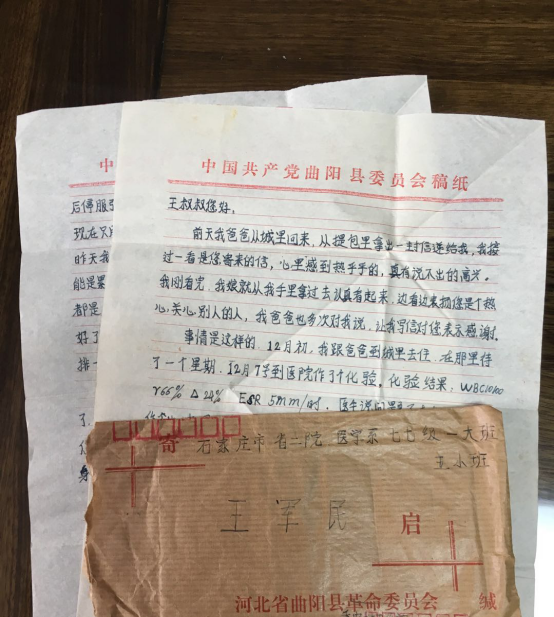 中国共产党曲阳县委员会稿纸
王叔叔您好。
前天我爸爸从城里回来，从提包里拿出一封信递给我，我接
过一看是您寄来的信，心里感到热乎乎的，真有说不出的高兴。
我刚看完，我娘就从我手里拿过去认真看起来，边看边夸您是个热
心关心别人的人，我爸爸也多次对我说，让我写信对您表示感谢。
事情是这样的，12月初，我跟爸爸到城里去住，在那里待
了一个星期，12月7号到医院作了个化验。化验结果，WBC
r66% △24% ESR 5mm/时.
中
后停服
现在只
昨天我
能是
都是
好了
排
了.
寄
石家庄市省二院 医学系七七级一大班
王小班
王军民
启
河北省曲阳县革命委员会 缄